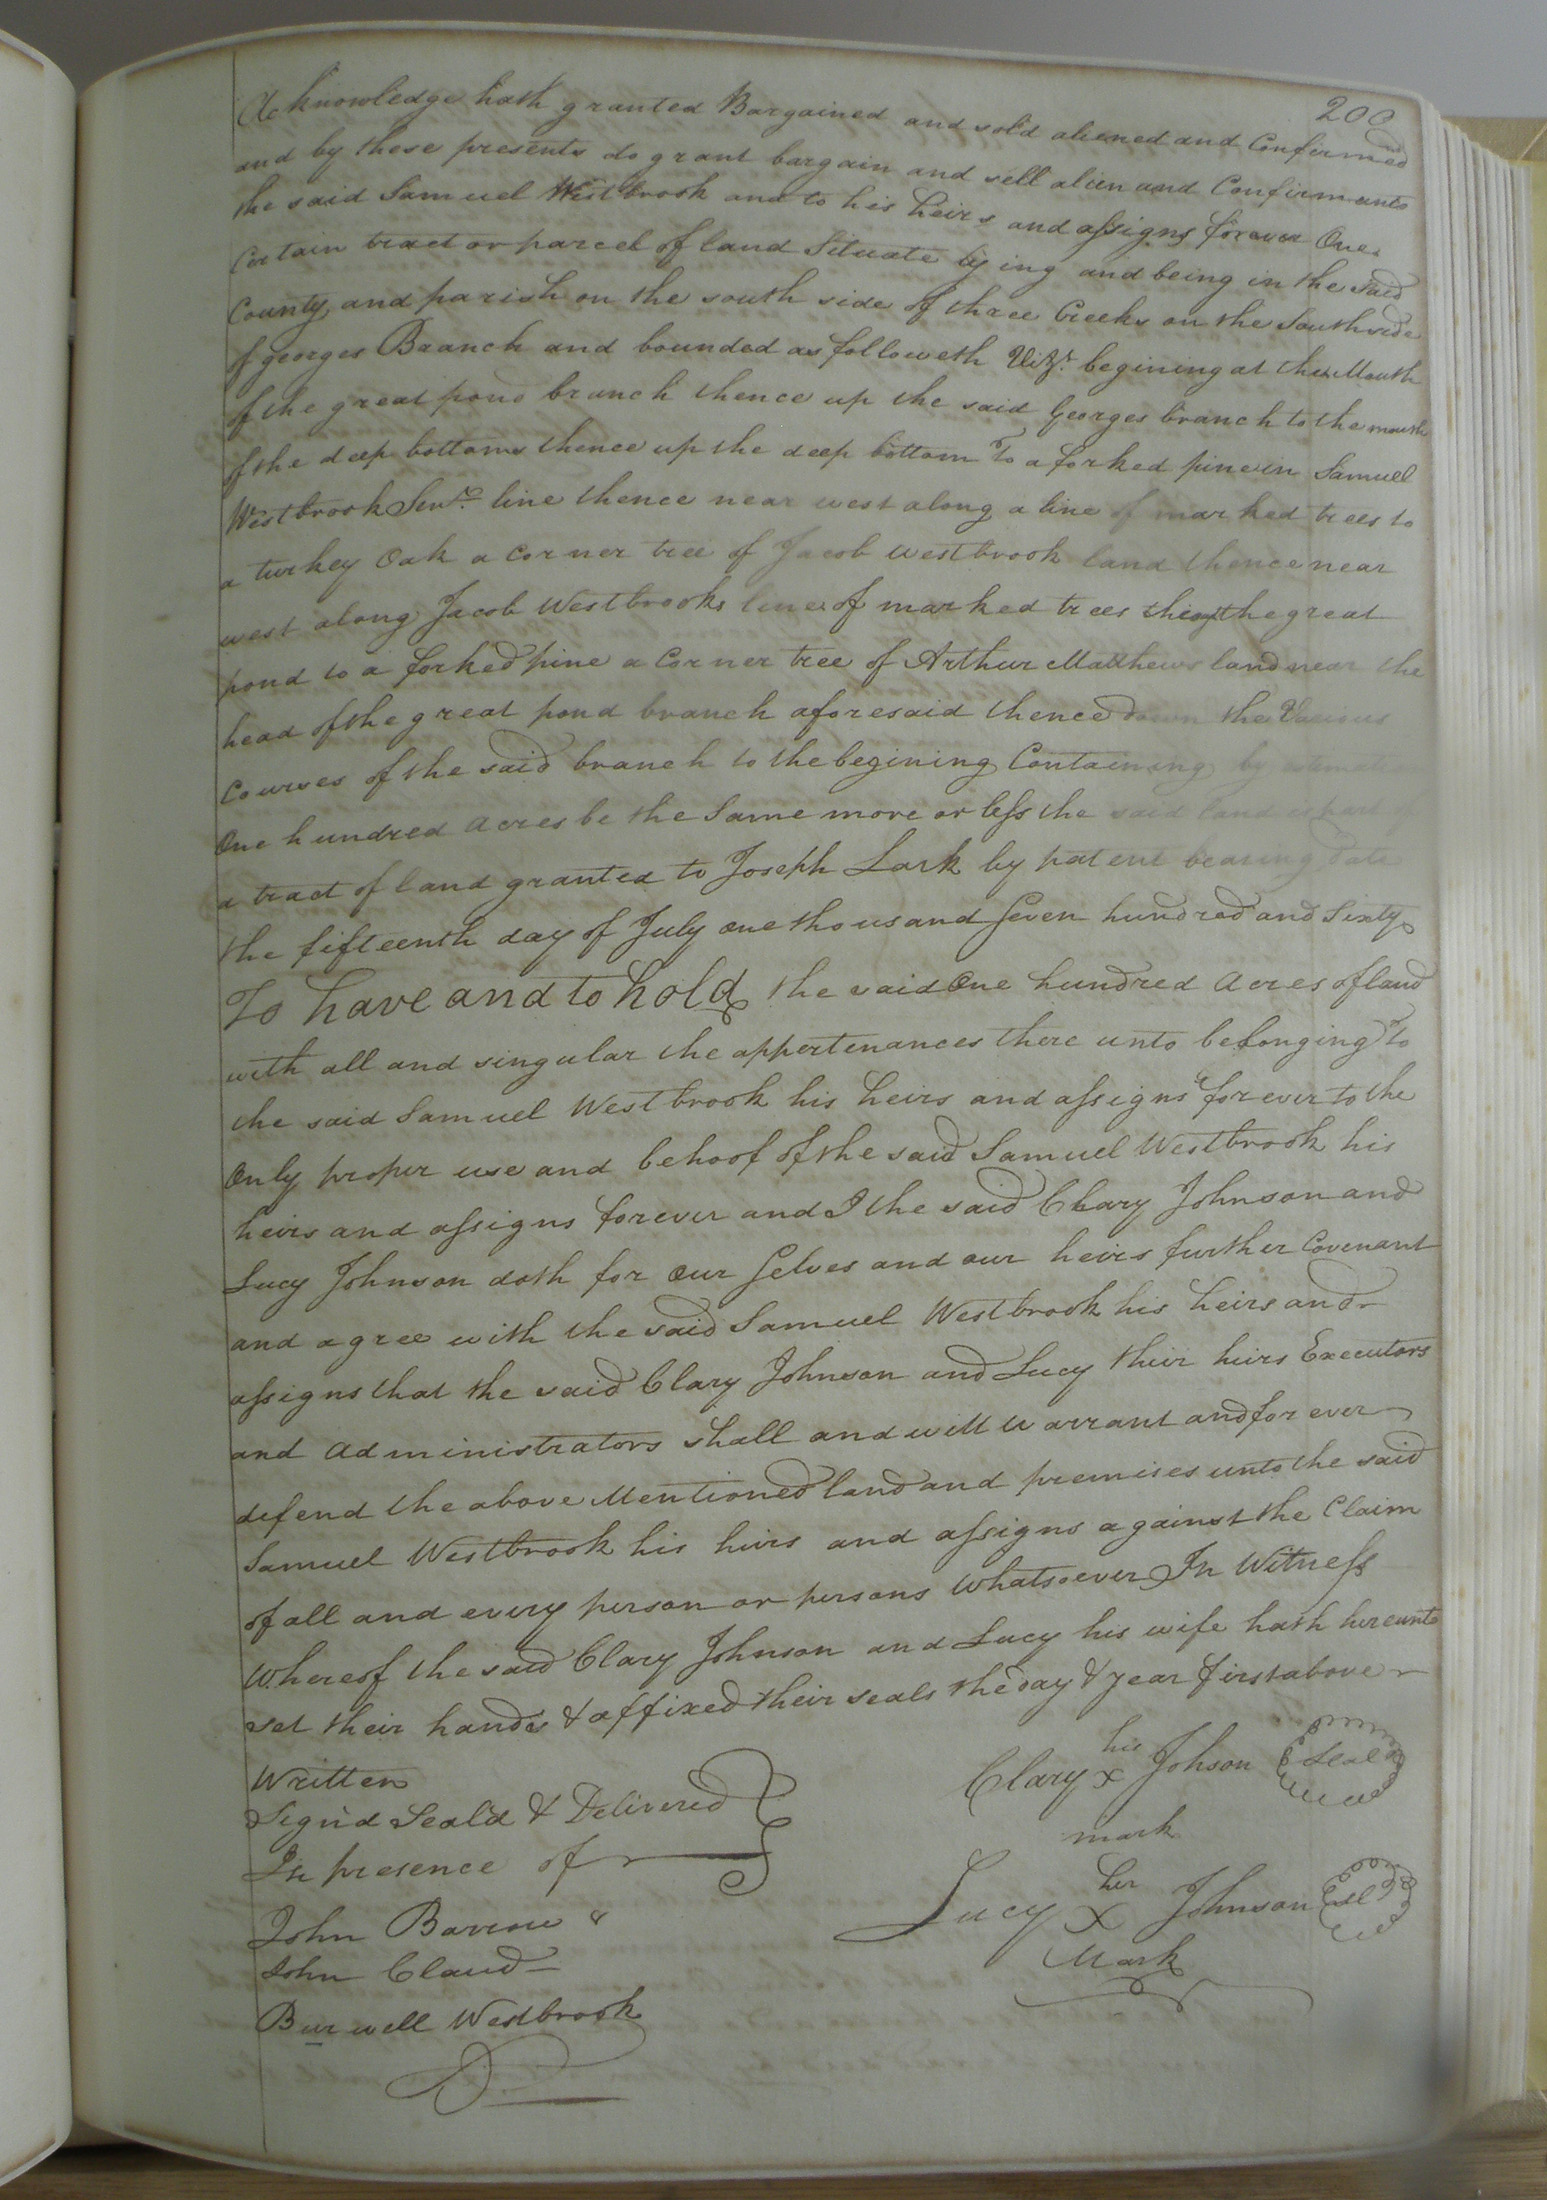 200
Acknowledge hath granted Bargained and sold aliened and Confirmed
and by these presents do grant bargain and sell alien and Confirm unto
the said Samuel Westbrook and to his heirs and assigns forever One
Certain tract or parcel of land Situate lying and being in the said
County, and parish on the south side of three Creeks on the South side
of georges Branch and bounded as followeth Vizt. begining at the Mouth
of the great pond branch thence up the said Georges branch to the mouth
of the deep bottoms thence up the deep bottom To a forked pine in Samuel
Westbrook Senr. line thence near west along a line of marked trees to
a turkey Oak a corner tree of Jacob Westbrook land thence near
west along Jacob Westbrooks lines of marked trees the great
pond to a forked pine a Corner tree of Arthur Matthews land near the
head of the great pond branch aforesaid thence down the Various
Courses of the said branch to the begining Containing by estimate
One hundred acres be the Same more or less the said land is part of
a tract of land granted to Joseph Lark by patent bearing date
the fifteenth day of July one thousand Seven hundred and Sixty
To have and to hold the said One hundred Acres of land
with all and singular the appertenances there unto belonging To
the said Samuel Westbrook his heirs and assigns forever to the
Only proper use and behoof of the said Samuel Westbrook his
heirs and assigns forever and I the said Clary Johnson and
Lucy Johnson doth for our Selves and our heirs further Covenant
and agree with the said Samuel Westbrook his heirs and
assigns that the said Clary Johnson and Lucy their heirs Executors
and administrators shall and will warrant and for ever
defend the above Mentioned land and premises unto the said
Samuel Westbrook his heirs and assigns against the Claim
of all and every person or persons whatsoever In Witness
Whereof the said Clary Johnson and Lucy his wife hath hereunto
set their hands & affixed their seals the day & year first above
Written
Sign'd Seal'd & Delivered
In presence of
John Barrow
John Claud
Burwell Westbrook
his
Clary x Johson Seal
mark
her
Lucy X Johnson Seal
Mark